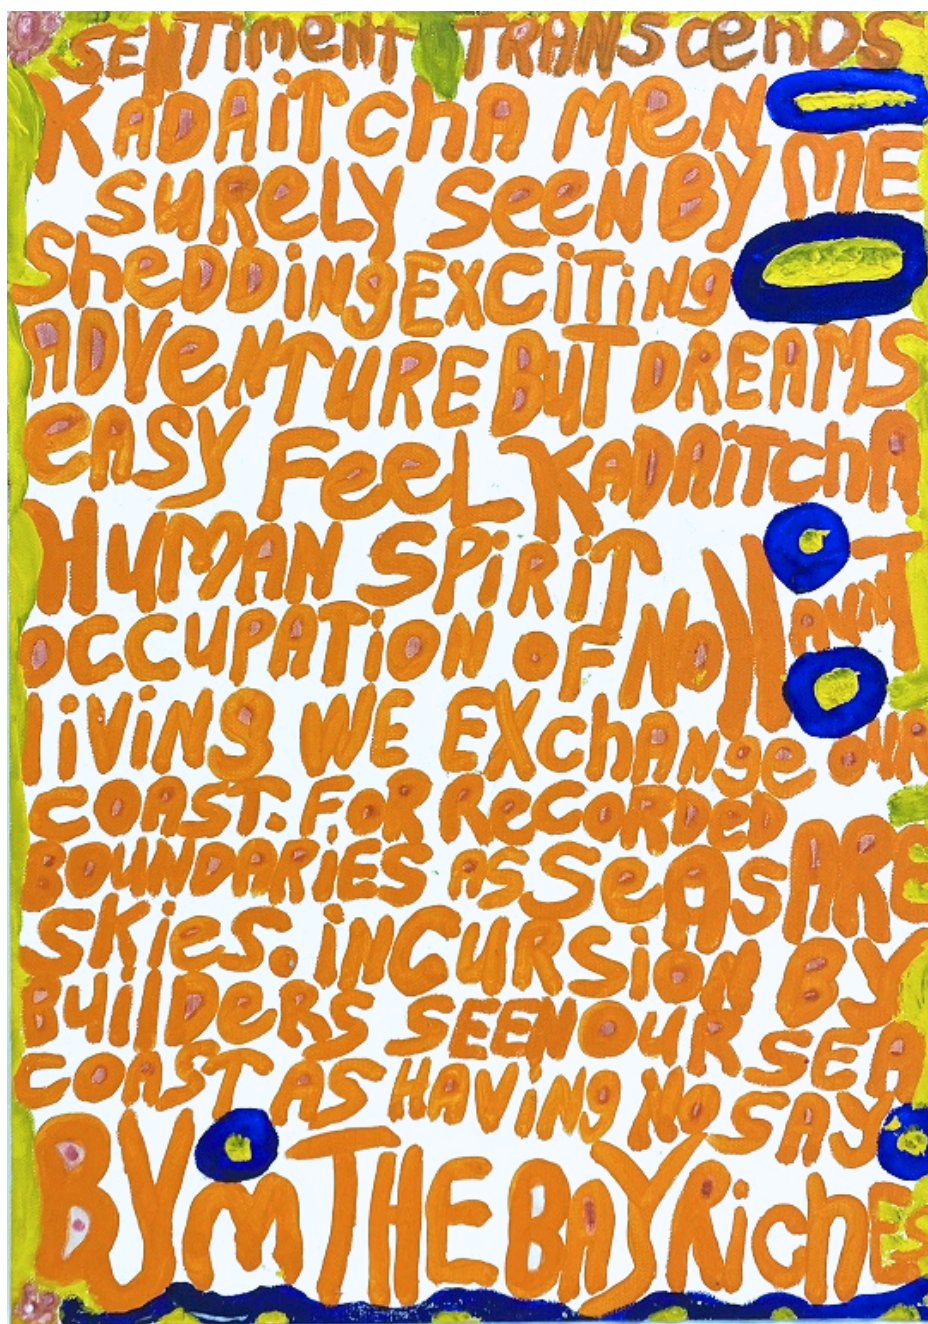 SENTiment TRANScenDS
KADAiTchA MeN
SURELY SeeN BY ME
SheDDiNg EXCiTiNg
ADVeNTURE BUT DREAMS
eASY FeeL KADAiTchA
HUMAN SPiRiT
OCCUPATiON OF NO HAUNT
LiViNg WE EXchANge OUR
COAST. FOR ReCORDeD
BOUNDARiES AS SeAS ARE
SKieS. iNCURSiON BY
BUilDeRS SEEN OUR SEA
COAST AS HAViNg NO SAY
BY M THE BAY RichES